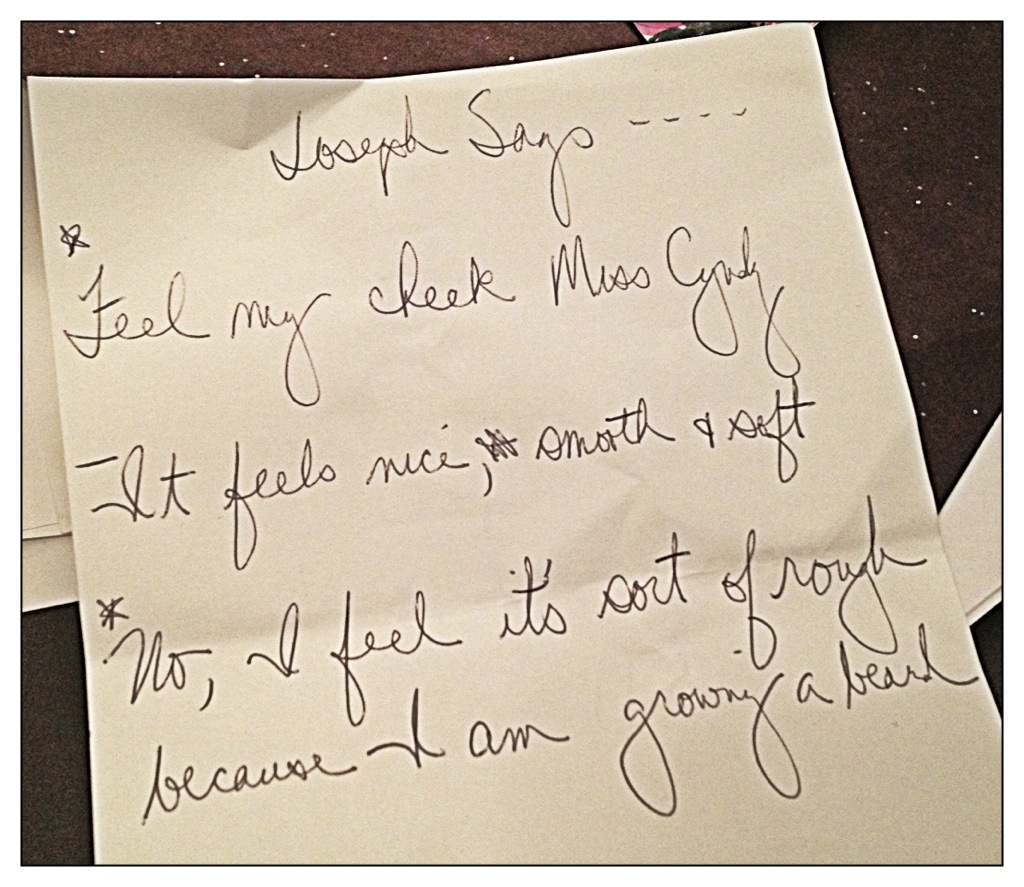 Joseph Says ----
* Feel my cheek Miss Cyndy
- It feels nice, smooth & soft
* No, I feel it's sort of rough
because I am growing a beard